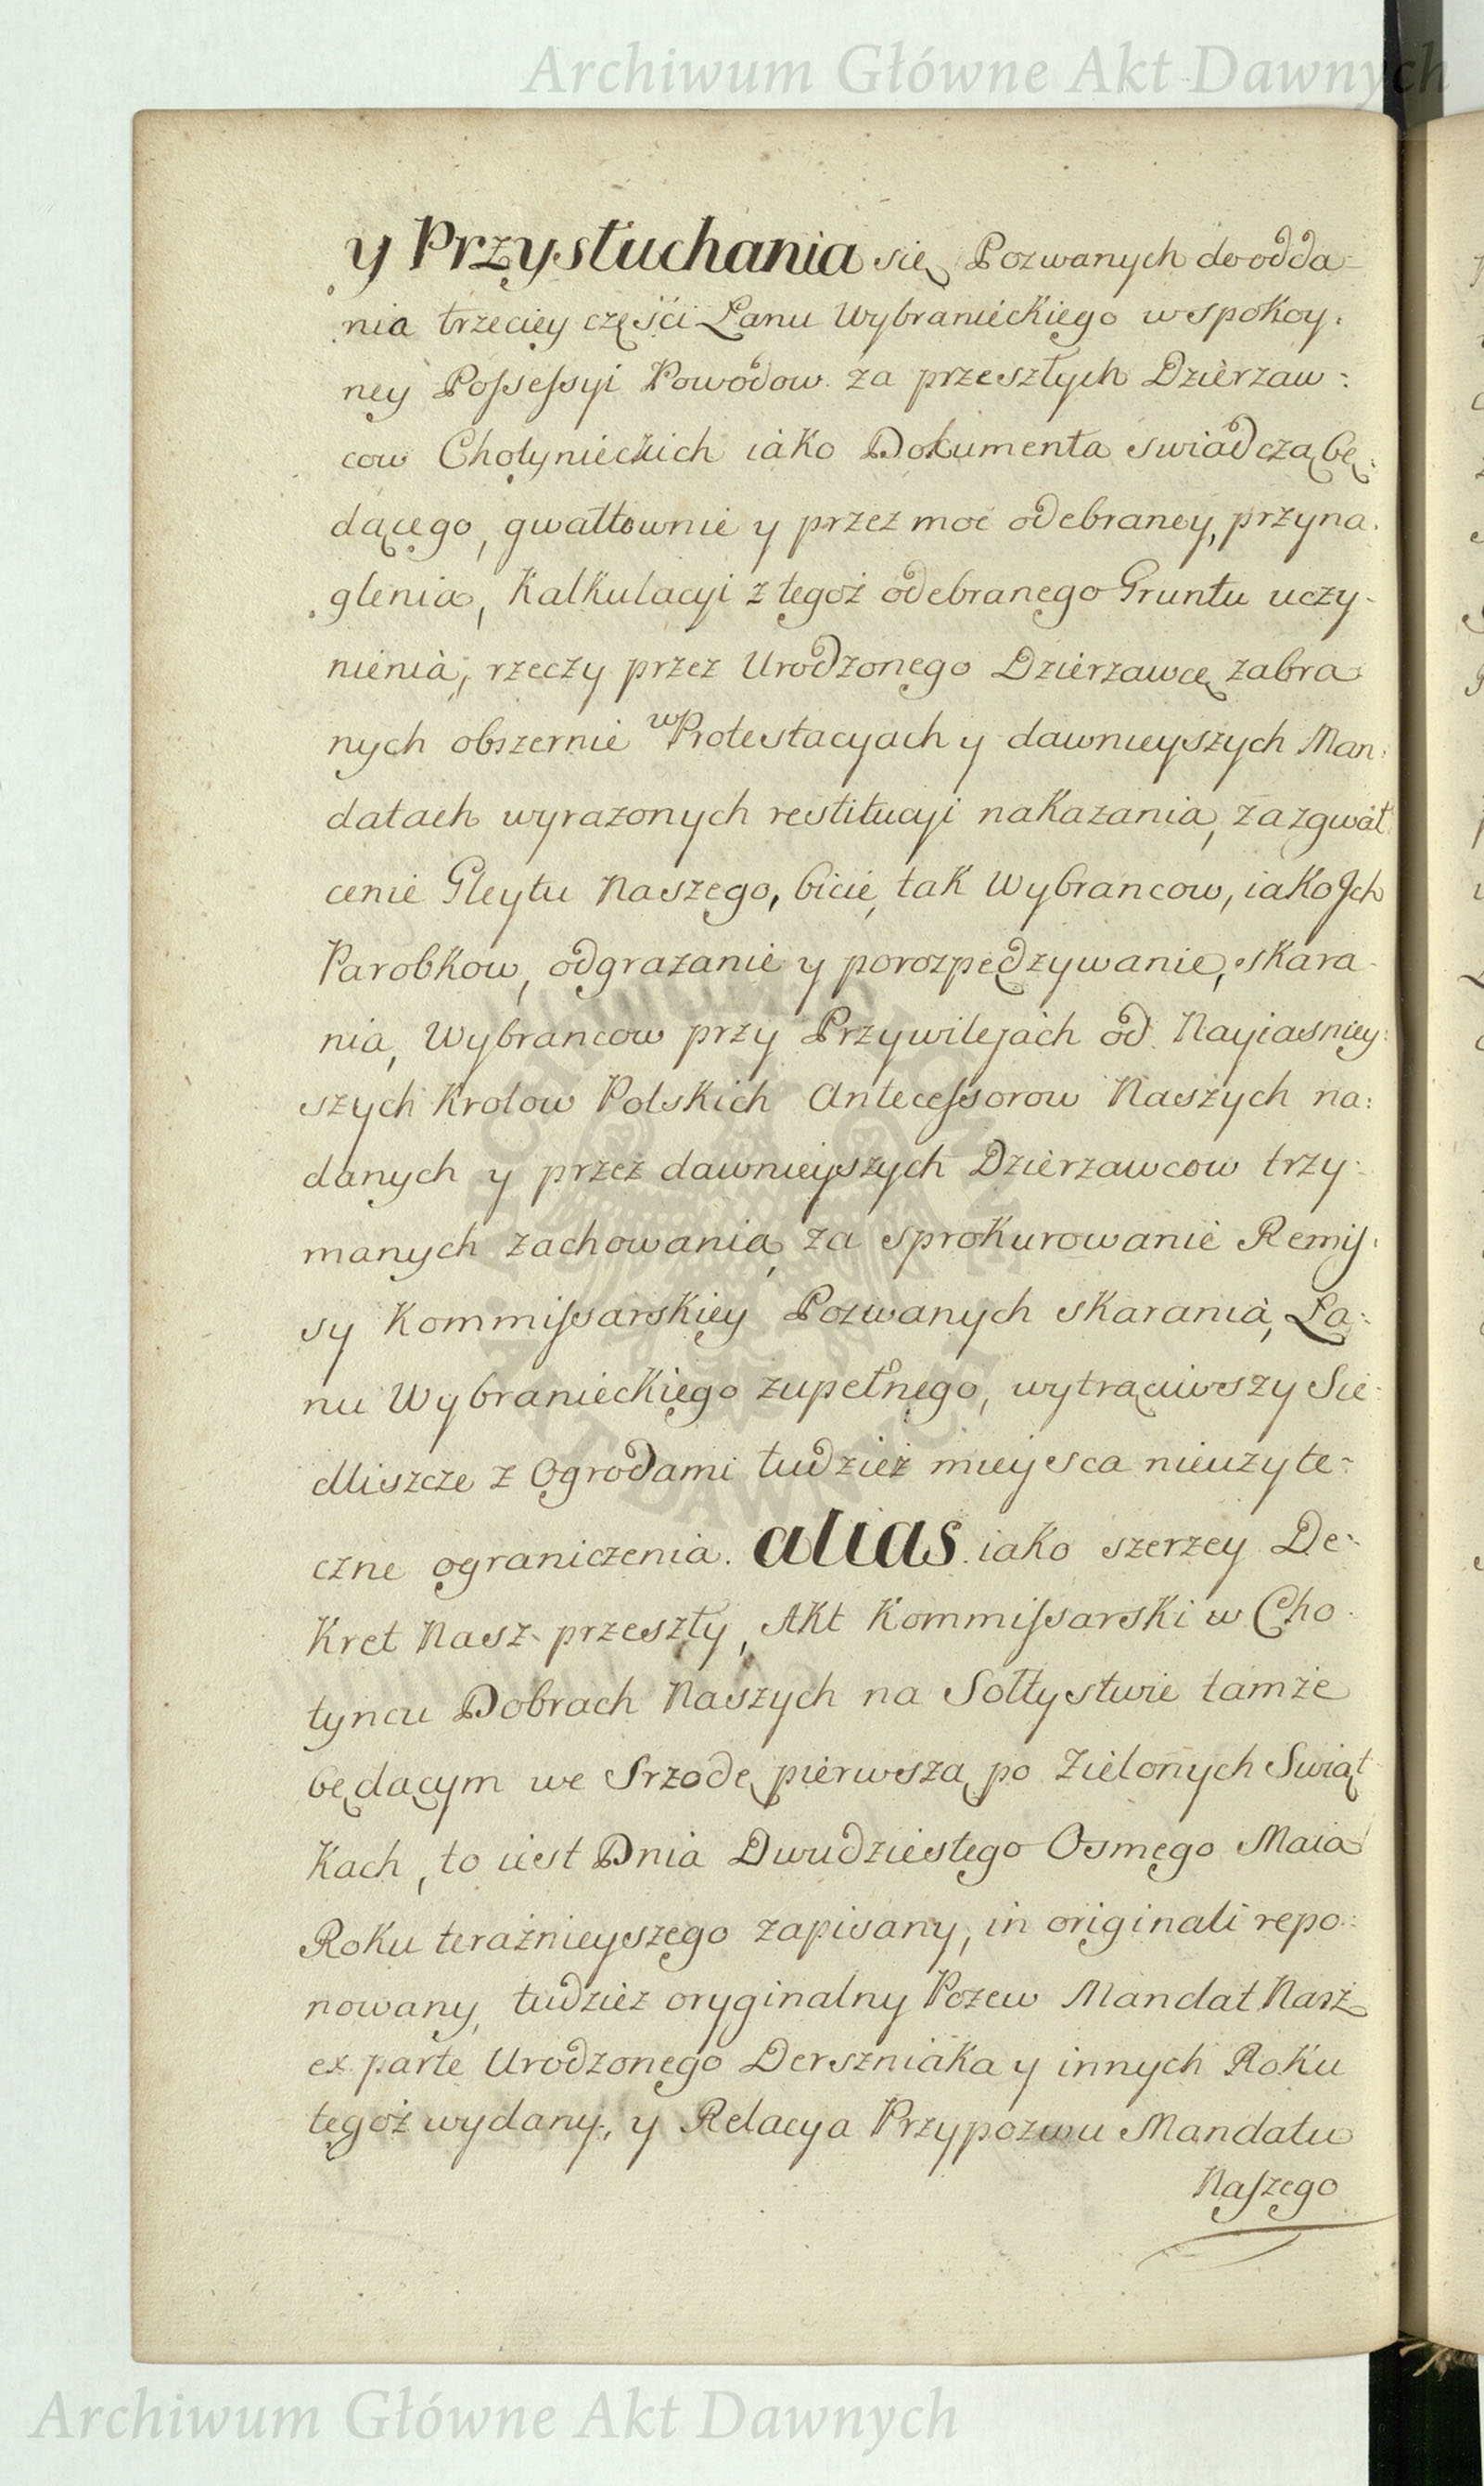 Archiwum Główne Akt Dawnych
y Przysłuchania się Pozwanych do odda-
nia trzeciey części Łanu Wybranieckiego w spokoy:
ney Possessyi Powodow za przeszłych Dzierzaw:
cow Chotynieckich iako Dokumenta swiadczą bę:
dącego, gwałtownie y przez moc odebraney, przyna.
glenia, Kalkulacyi z tegoż odebranego Gruntu uczy-
nienia, rzeczy przez Urodzonego Dzierzawcę zabra
nych obszernie w Protestacyach y dawnieyszych Man:
datach wyrazonych restitucyi nakazania, za zgwał
cenie Gleytu Naszego, bicie, tak Wybrancow, iako Jch
Parobkow, odgrazanie y porozpędzywanie, skara-
nia, Wybrancow przy Przywilejach od Nayiasniey:
szych Krolow Polskich Antecessorow Naszych na:
danych y przez dawnieyszych Dzierzawcow trzy-
manych zachowania, za sprokurowanie Remis:
sy Kommissarskiey Pozwanych skarania, Ła:
nu Wybranieckiego zupełnego, wytrąciwszy Sie:
dliszcze z Ogrodami tudzież mieysca nieuzyte:
czne ograniczenia. alias iako szerzey De:
kret Nasz przeszły, Akt Kommissarski w Cho-
tyncu Dobrach Naszych na Sołtystwie tamże
będącym we Srzodę pierwszą po Zielonych Swiąt
kach, to iest Dnia Dwudziestego Osmego Maia
Roku teraznieyszego zapisany, in originali repo:
nowany, tudzież oryginalny Pozew Mandat Nasz
ex parte Urodzonego Derszniaka y innych Roku
tegoż wydany, y Relacya Przypozwu Mandatu
Naszego
Archiwum Główne Akt Dawnych